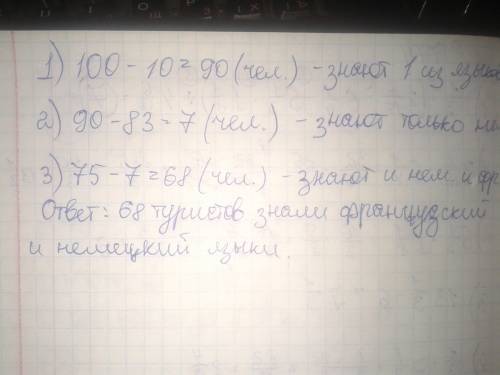 1) 100 - 10 = 90 (чел.) - знают 1 из языко
2) 90 - 83 = 7 (чел.) - знают только не
3) 75 - 7 = 68 (чел.) - знают и нем. и фр
Ответ: 68 туристов знали французский
и немецкий языки.